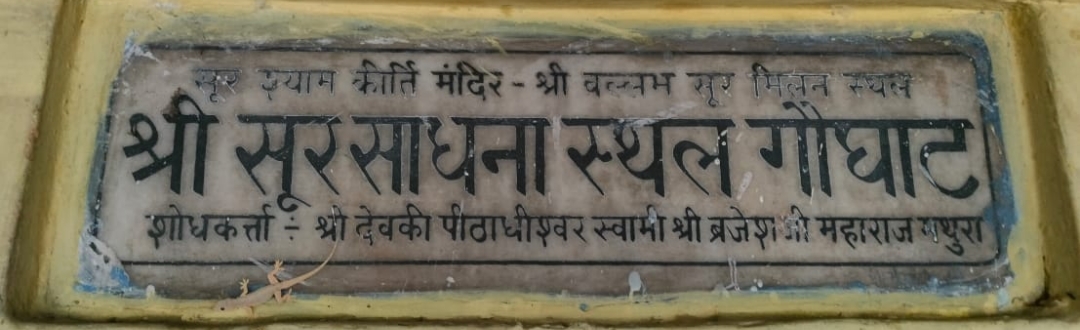 सूर श्याम कीर्ति मंदिर - श्री वल्लभ सूर मिलन स्थल
श्री सूर साधना स्थल गौघाट
शोधकर्त्ता ÷ श्री देवकी पीठाधीश्वर स्वामी श्री ब्रजेश जी महाराज मथुरा